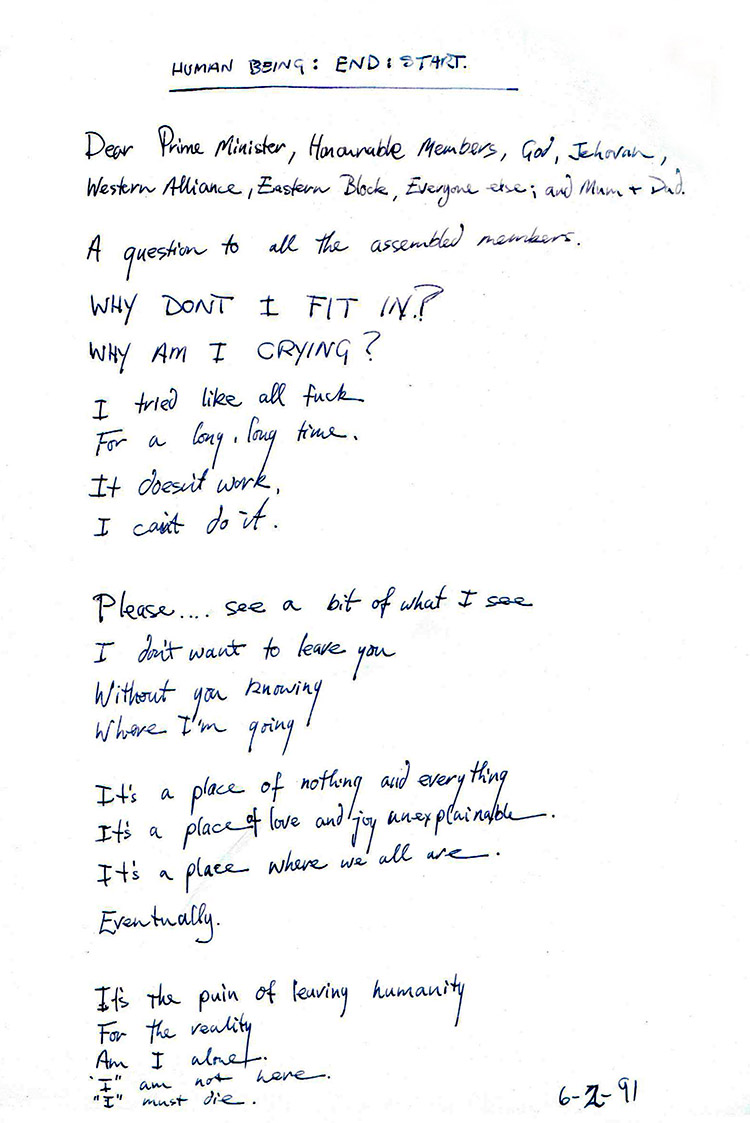 HUMAN BEING: END: START.
Dear Prime Minister, Honourable Members, God, Jehovah,
Western Alliance, Eastern Block, Everyone else; and Mum + Dad.
A question to all the assembled members.
WHY DONT I FIT IN?
WHY AM I CRYING?
I tried like all fuck
For a long, long time.
It doesn't work,
I can't do it.
Please.... see a bit of what I see
I don't want to leave you
Without you knowing
Where I'm going
It's a place of nothing and everything
It's a place of love and joy unexplainable.
It's a place where we all are.
Eventually.
It's the pain of leaving humanity
For the reality
Am I alone.
"I" am not here.
"I" must die.
6-2-91